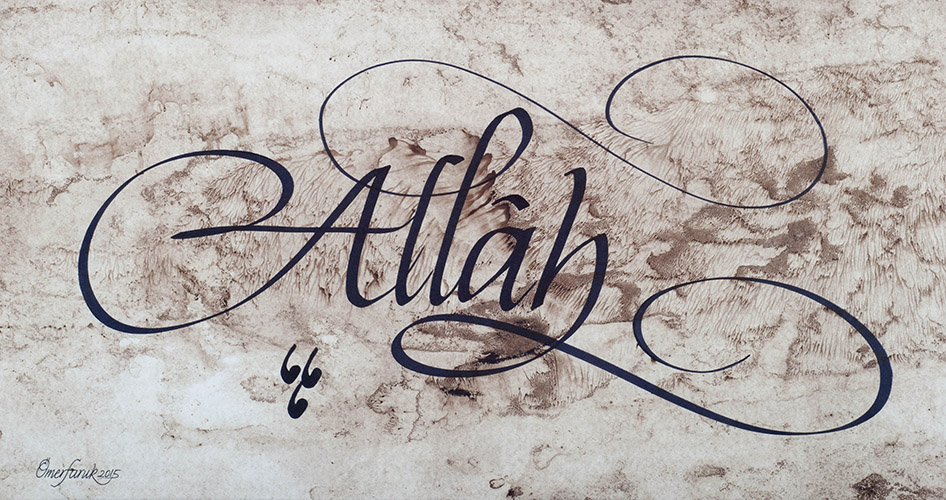 Allâh
Ömerfaruk 2015